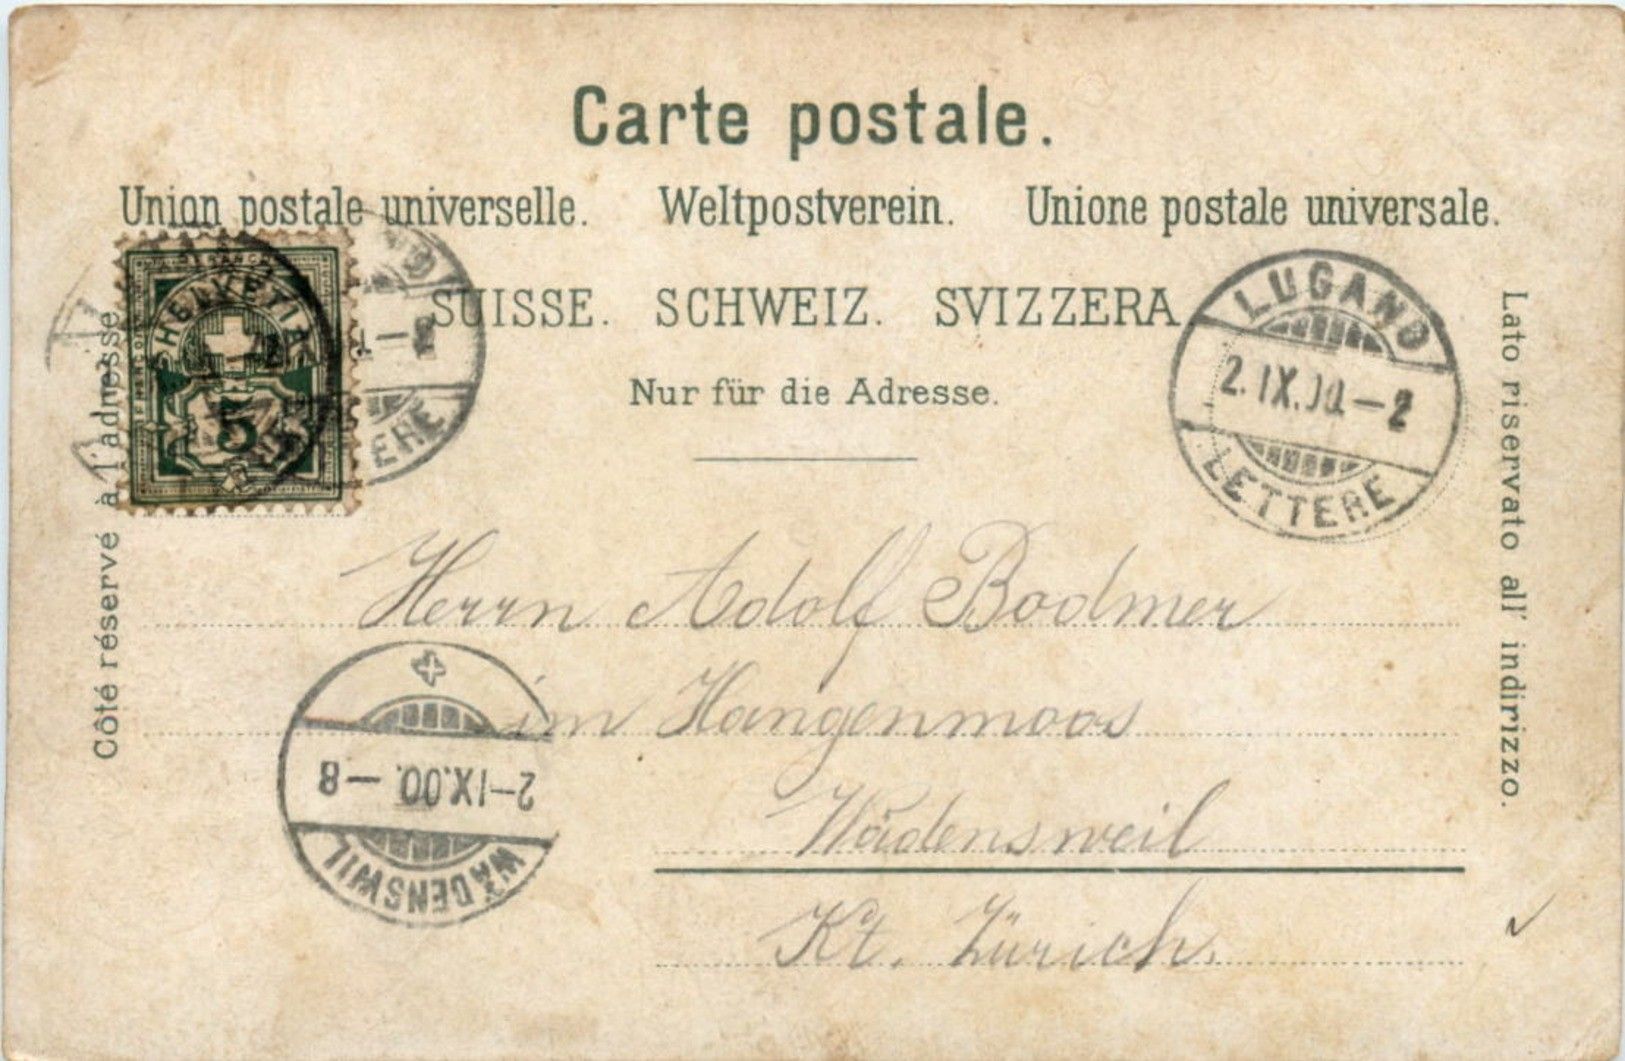 Carte postale.
Union postale universelle. Weltpostverein. Unione postale universale.
SUISSE. SCHWEIZ. SVIZZERA
Nur für die Adresse.
Côté réservé à l'adresse.
Lato riservato all' indirizzo.
HELVETIA
5
LUGANO
2.IX.00.-2
LETTERE
Herrn Adolf Bodmer
im Hangenmoos
Wädensweil
Kt. Zürich.
2-IX.00.-8
WÄDENSWIL